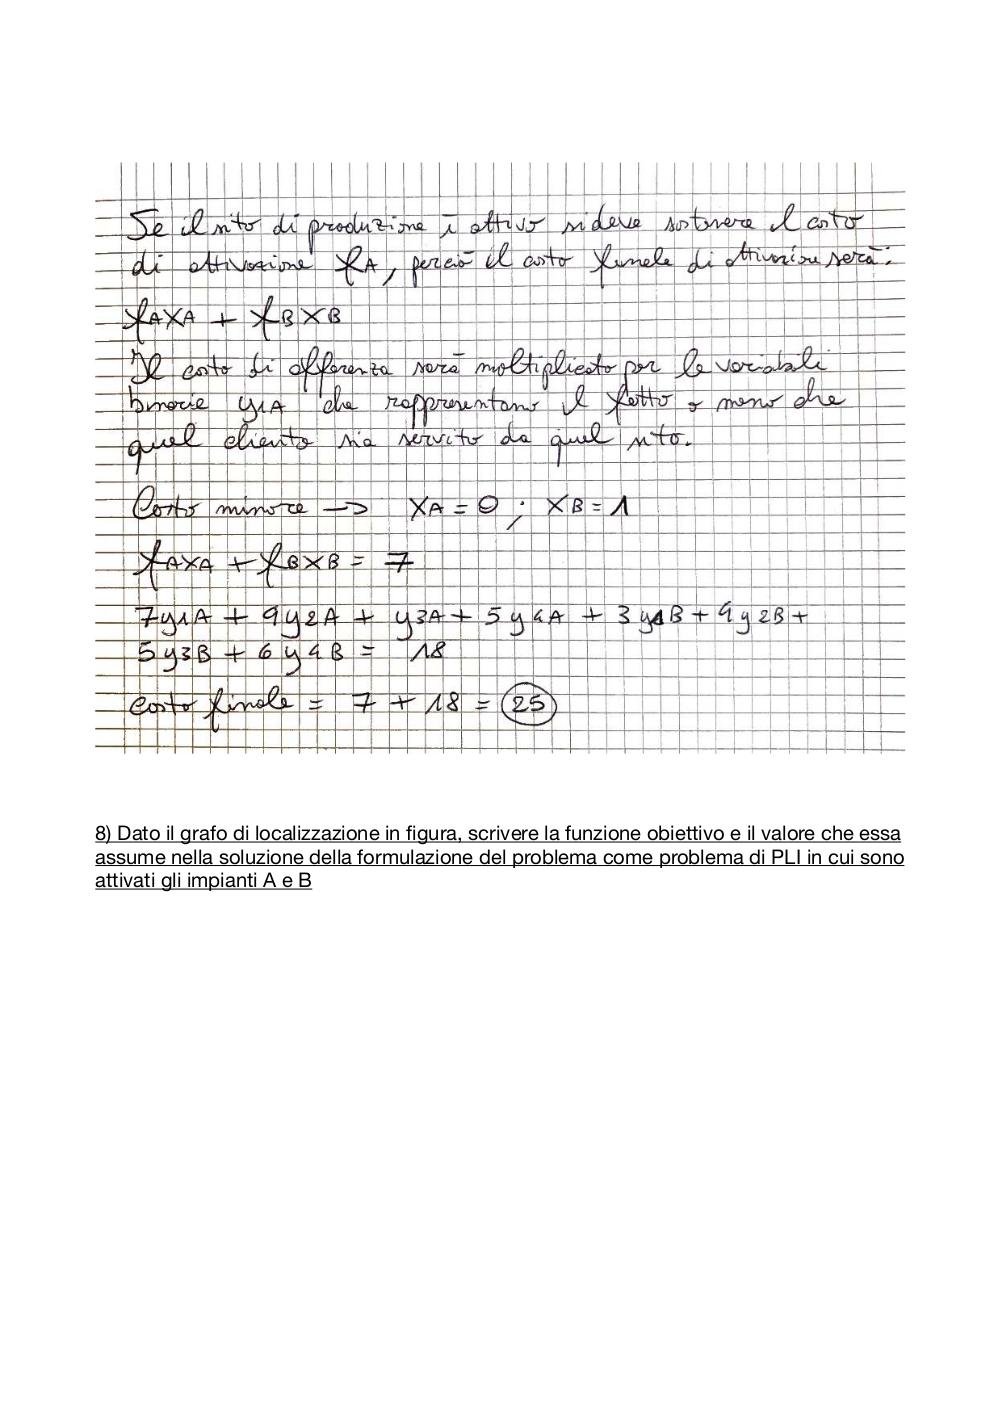 Se il sito di produzione è attivo si deve sostenere il costo
di attivazione fA, perciò il costo finale di attivazione sarà:
fAXA + fBXB
Il costo di afferenza sarà moltiplicato per le variabili
binarie y1A che rappresentano il fatto o meno che
quel cliente sia servito da quel sito.
Costo minore -> XA = 0 ; XB = 1
fAXA + fBXB = 7
7y1A + 9y2A + y3A + 5y4A + 3y1B + 4y2B +
5y3B + 6y4B = 18
costo finale = 7 + 18 = 25
8) Dato il grafo di localizzazione in figura, scrivere la funzione obiettivo e il valore che essa
assume nella soluzione della formulazione del problema come problema di PLI in cui sono
attivati gli impianti A e B